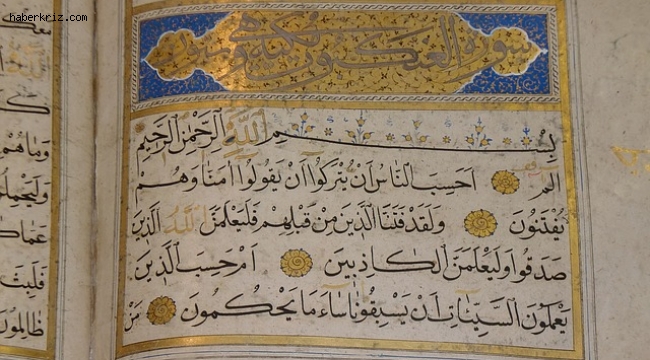 haberkriz.com
سورة العنكبوت مكية وهي
بِسْمِ اللَّهِ الرَّحْمٰنِ الرَّحِيمِ
الم اَحَسِبَ النَّاسُ اَنْ يُتْرَكُوا اَنْ يَقُولُوا اٰمَنَّا وَهُمْ
يُفْتَنُونَ وَلَقَدْ فَتَنَّا الَّذِينَ مِنْ قَبْلِهِمْ فَلَيَعْلَمَنَّ اللَّهُ الَّذِينَ
صَدَقُوا وَلَيَعْلَمَنَّ الْكَاذِبِينَ اَمْ حَسِبَ الَّذِينَ
يَعْمَلُونَ السَّيِّئَاتِ اَنْ يَسْبِقُونَا سَاءَ مَا يَحْكُمُونَ مَنْ
وَمَاهُمْ
فَلَبِثَ
ظَالِمُونَ